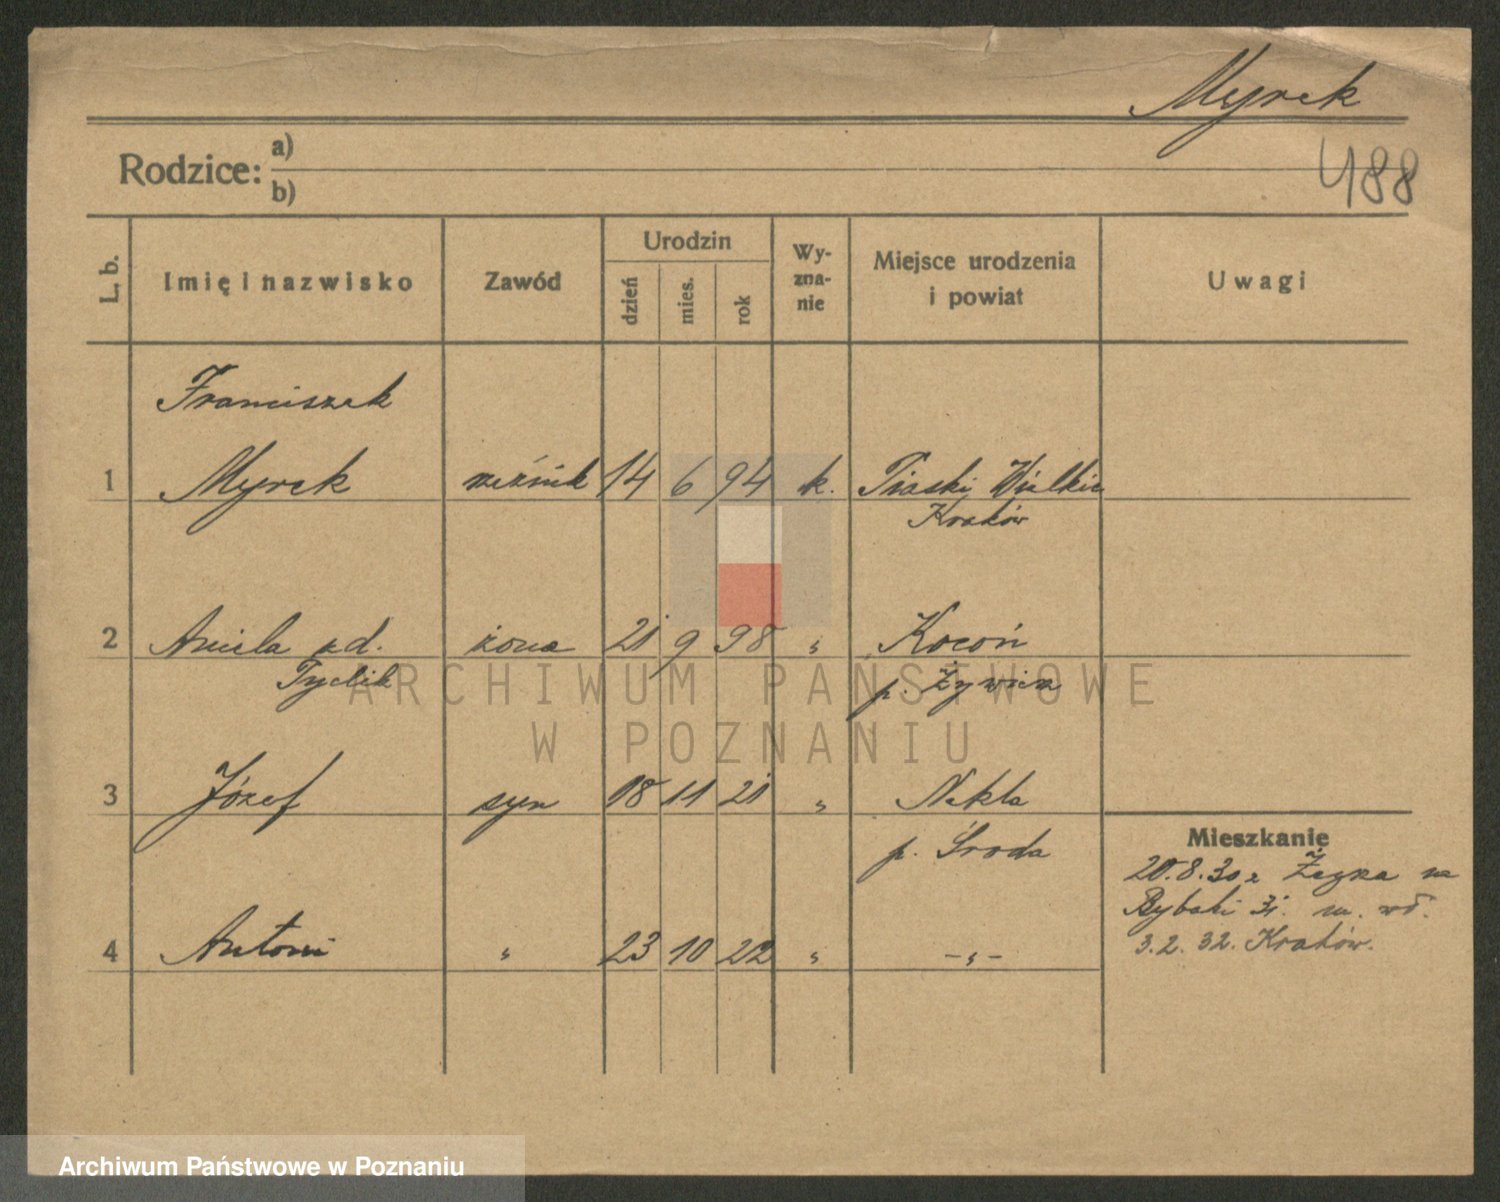 Myrek
488
Rodzice: a)
b)
L. b. Imię i nazwisko Zawód Urodzin dzień mies. rok Wy-zna-nie Miejsce urodzenia i powiat Uwagi
Franciszek
1 Myrek rzeźnik 14 6 94 k. Piaski Wielkie
Kraków
2 Aniela żona 21 9 98 „ Kocoń
Tyclik p. Żywiec
ARCHIWUM PAŃSTWOWE
W POZNANIU
3 Józef syn 18 11 21 „ Nekla
p. Środa
Mieszkanie
20.8.30 z
Rybaki 31. m.
4 Antoni „ 23 10 22 „ -„-
3.2.32. Kraków.
Archiwum Państwowe w Poznaniu